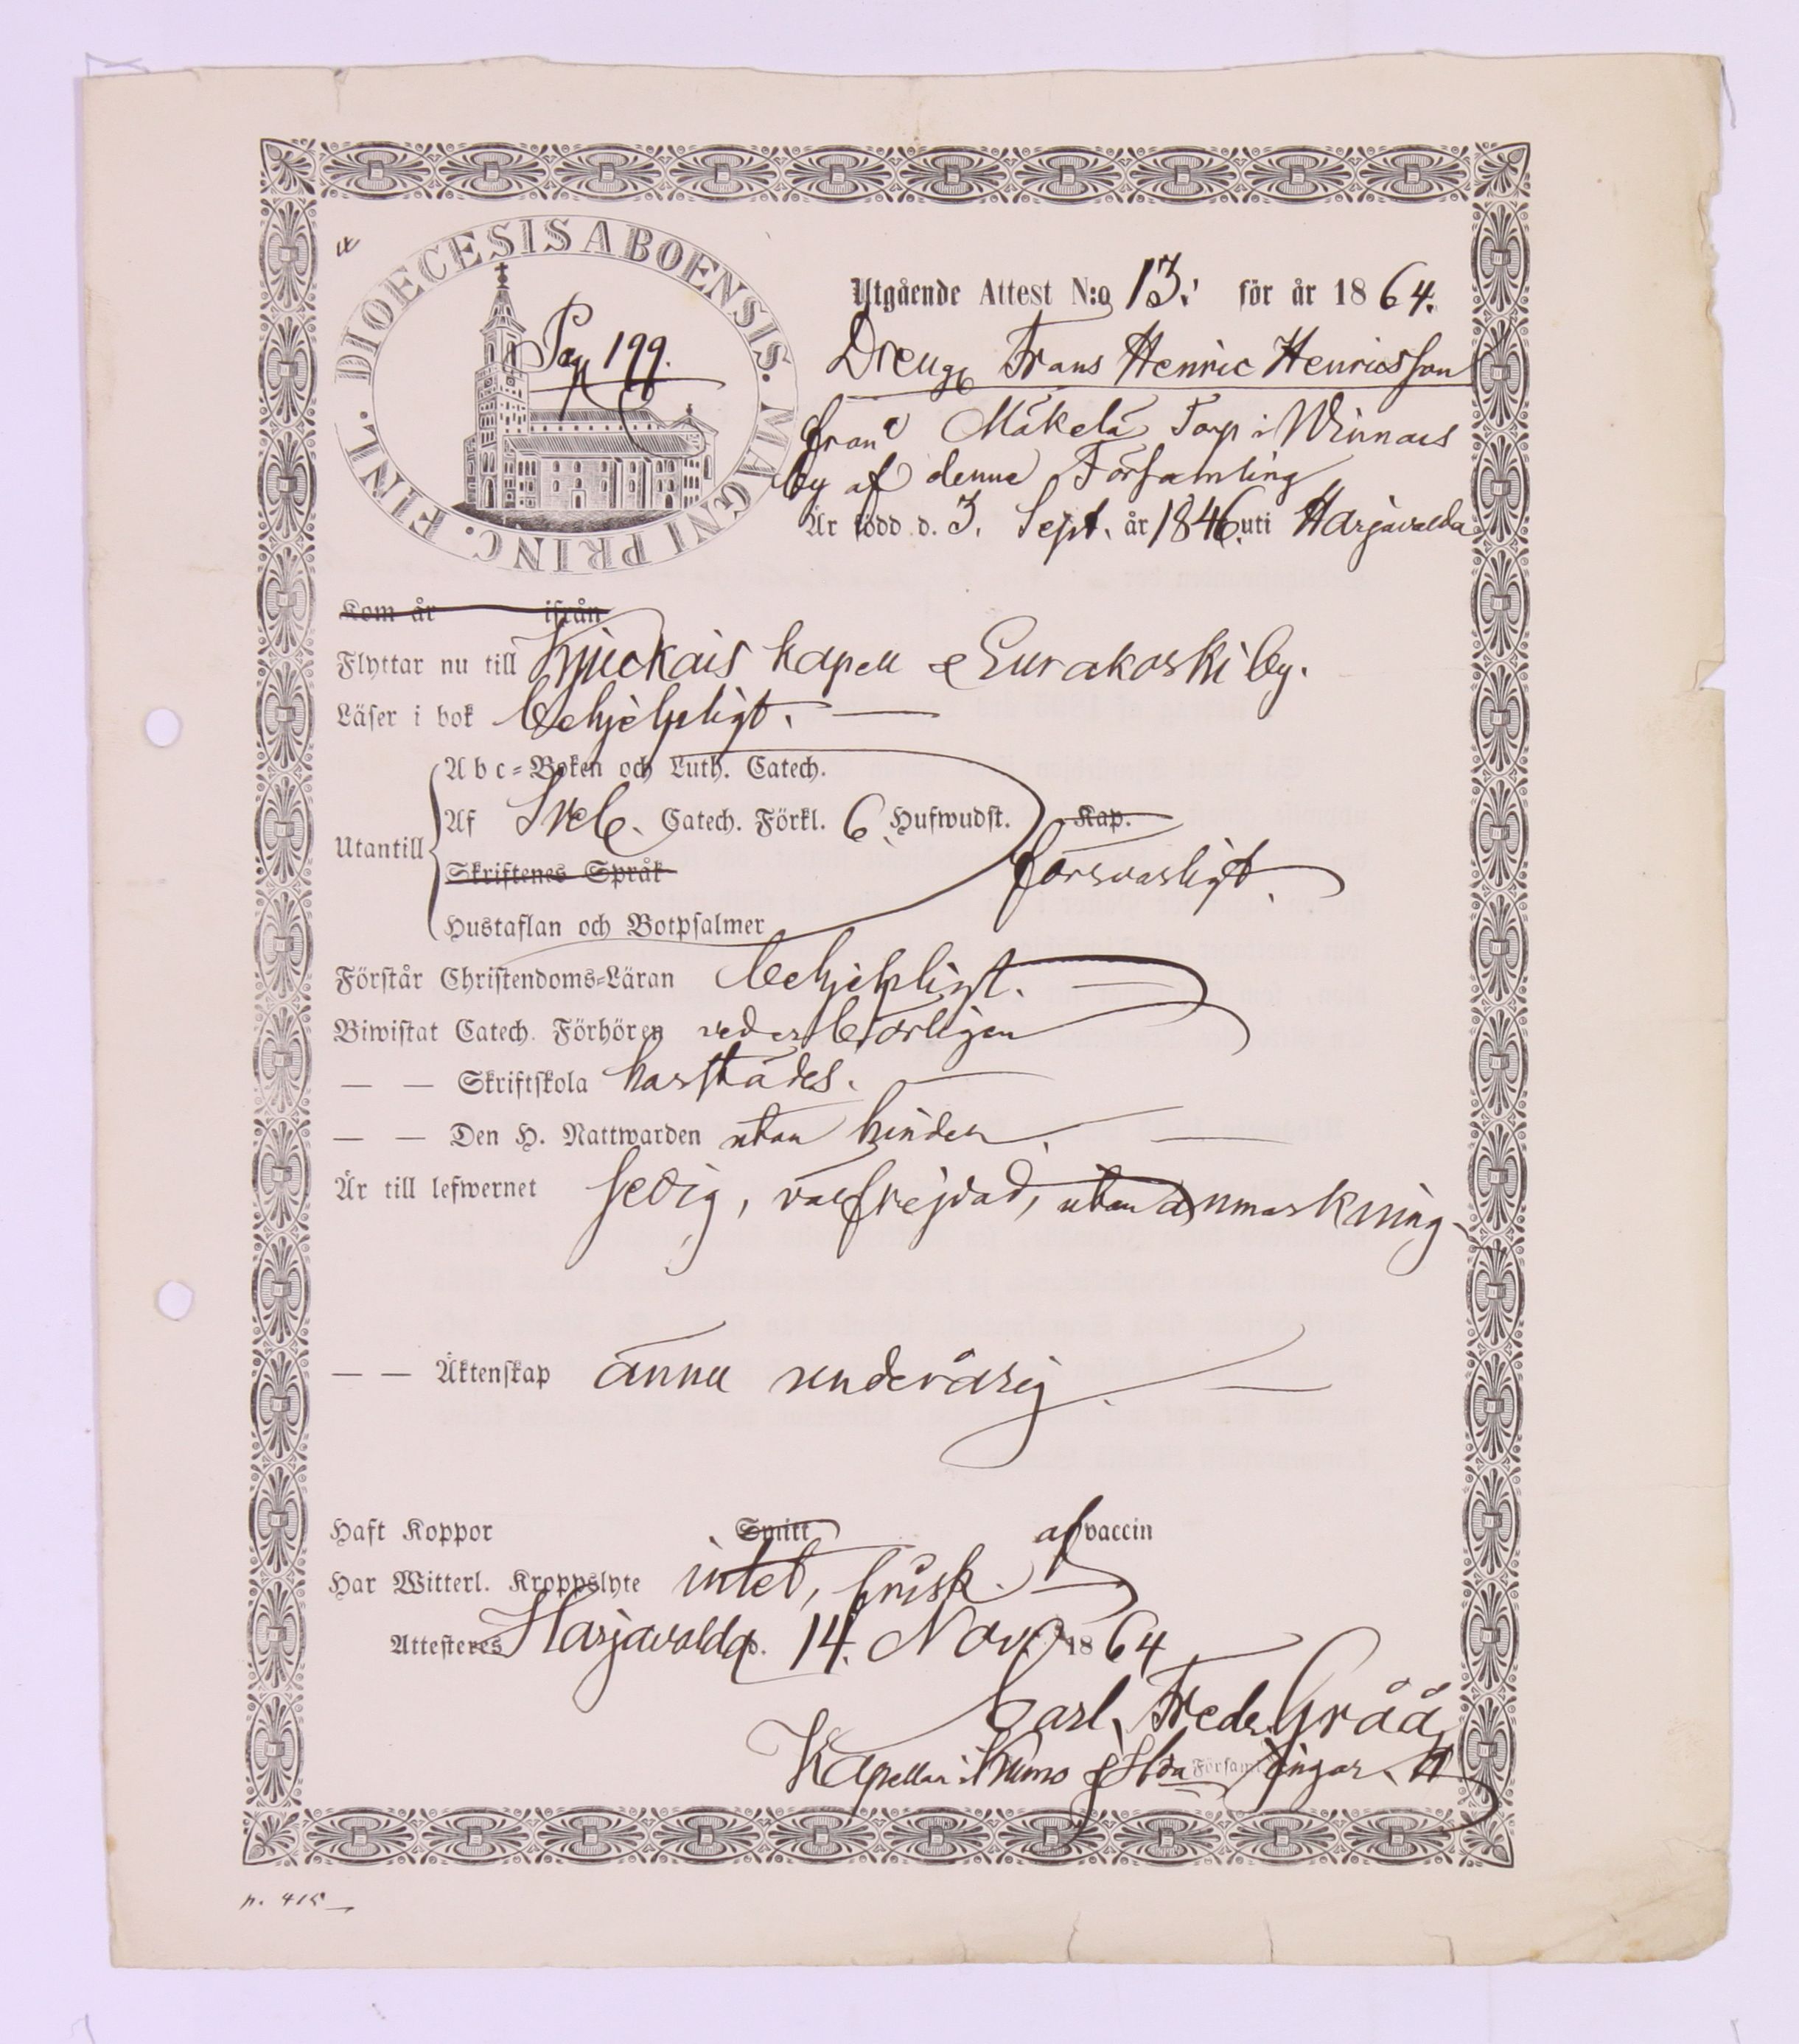 DIOECESIS ABOENSIS. MAGNI PRINC. FINL.
Pag 199.
Utgående Attest N:o 13. för år 1864.
Dreng Frans Henric Henricsson
från Mäkelä Torp i Winnais
by af denne Församling
Är född d. 3. Sept. år 1846. uti Harjavalda
Kom år ifrån
Flyttar nu till Kjuckais kapell & Eurakoski by.
Läser i bok behjelpligt.
Abc-Boken och Luth. Catech.
Utantill Af Sveb. Catech. Förkl. 6 Hufwudst. Kap.
försvarligt.
Skriftenes Språk
Hustaflan och Botpsalmer
Förstår Christendoms-Läran behjelpligt.
Biwistat Catech. Förhören vederbörligen
— — Skriftskola härstädes.
— — Den H. Nattwarden utan hinder.
Är till lefwernet sedig, välfrejdad, utan anmärkning
— — Äktenskap ännu underårig
Haft Koppor Smitt af vaccin
Har Witterl. Kroppslyte intet, frisk.
Attesteres Harjavalda d. 14. Nov. 1864
Carl Fredr Gråå
Kapellan i Kumo Församlingar
p. 415